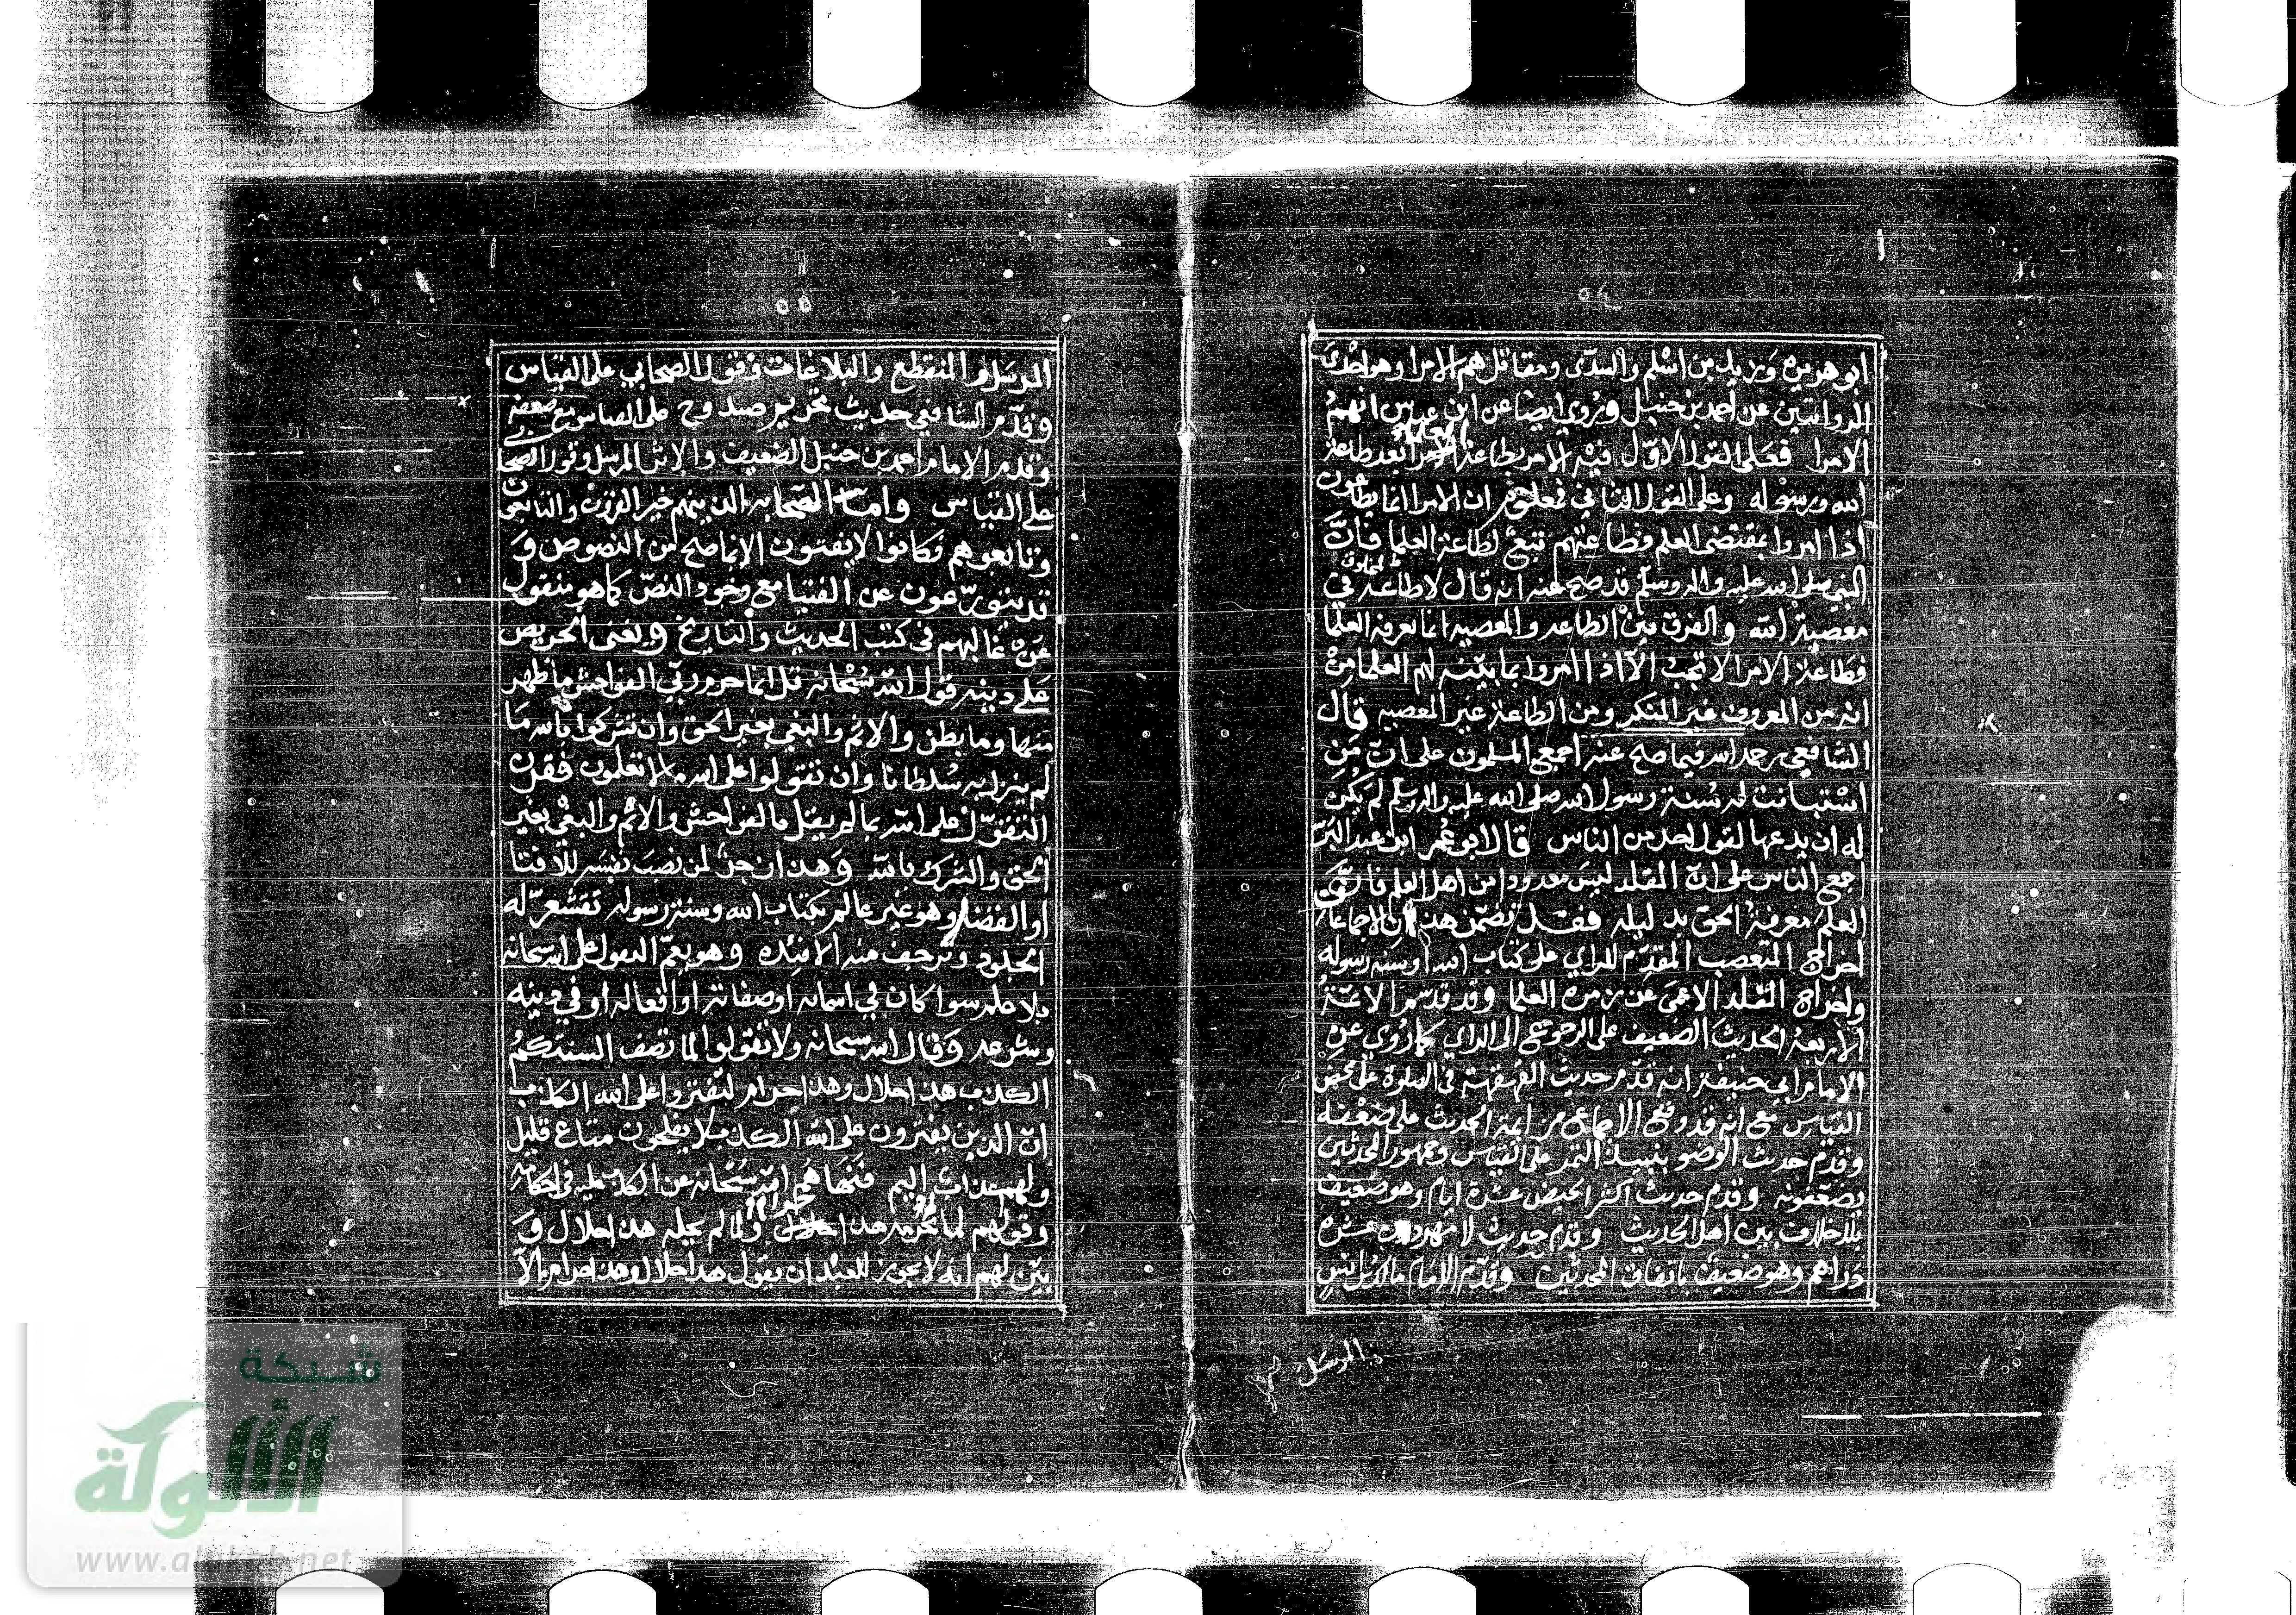 ٥٤
ابو هريره وزيد بن اسلم والسدّى ومقاتل هم الامرا وهو احدى
الروايتين عن احمد بن حنبل وروي ايضا عن ابن عباس انهم
الامرا فعلى القول الاوّل فيه الامر بطاعة العلماء بعد طاعة
الله ورسوله وعلى القول الثاني ان الامرا انما يطاعون
اذا امروا بمقتضى العلم فطاعتهم تبعٌ لطاعة العلما فانّ
النبي صلى الله عليه واله وسلم قد صح عنه انه قال لا طاعة لمخلوق في
معصية الله والفرق بين الطاعه والمعصيه انما يعرفه العلما
فطاعة الامرا لا تجب الّا اذا امروا بما بيّنه لهم العلما من
انه من المعروف غير المنكر ومن الطاعة غير المعصيه قال
الشافعي رحمه الله فيما صح عنه اجمع المسلمون على انّ من
استبانت له سنة رسول الله صلى الله عليه واله وسلم لم يكن
له ان يدعها لقول احد من الناس قال ابو عمر ابن عبد البرّ
اجمع الناس على انّ المقلد ليس معدودا من اهل العلم فانّ
العلم معرفة الحق بدليله فقد تضمّن هذان الاجماعان
اخراج المتعصب المقدّم للراي على كتاب الله وسنة رسوله
واخراج المقلد الاعمى عن زمرة العلما وقد قدّم الائمة
الاربعة الحديث الضعيف على الرجوع الى الراي كما رُوى عن
الامام ابي حنيفة انه قدّم حديث القهقهة في الصلوة على محض
القياس مع انه قد وقع الاجماع من ايمة الحديث على ضعفه
وقدّم حديث الوضو بنبيذ التمر على القياس وجمهور المحدثين
يضعّفونه وقدم حديث اكثر الحيض عشرة ايام وهو ضعيف
بلا خلاف بين اهل الحديث وقدم حديث لا مهر دون عشره
دراهم وهو ضعيف باتفاق المحدثين وقدّم الامام مالك بن انس
المرسل
٥٥
المرسل والمنقطع والبلاغات وقول الصحابي على القياس
وقدّم الشافعي حديث تحريم صيد وج على القياس مع ضعفه
وقدم الامام احمد بن حنبل الضعيف والاثر المرسل وقول الصحابي
على القياس واما الصّحابه الذين هم خير القرون والتابعون
وتابعوهم فكانوا لا يفتون الا بما صح من النصوص و
قد يتورّعون عن الفتيا مع وجود النصّ كما هو منقول
عن غالبهم في كتب الحديث والتاريخ ويغنى الحريص
على دينه قول الله سبحانه قل انما حرم ربّي الفواحش ما ظهر
منها وما بطن والاثم والبغي بغير الحق وان تشركوا بالله ما
لم ينزل به سلطانا وان تقولوا على الله ما لا تعلمون فقرن
التقوّل على الله بما لم يقل بالفواحش والاثم والبغي بغير
الحق والشرك بالله وهذا زجر لمن نصب نفسه للافتا
او القضا وهو غير عالم بكتاب الله وسنة رسوله تقشعرّ له
الجلود وترجف منه الافئده وهو يعمّ التقول على الله سبحانه
بلا علم سوا كان في اسمائه او صفاته او افعاله او في دينه
وشرعه وقال الله سبحانه ولا تقولوا لما تصف السنتكم
الكذب هذا حلال وهذا حرام لتفتروا على الله الكذب
انّ الذين يفترون على الله الكذب لا يفلحون متاع قليل
ولهم عذاب اليم فنهاهم الله سبحانه عن الكذب عليه في احكامه
وقولهم لما لم يحرمه هذا حرام ولما لم يحله هذا حلال و
بيّن لهم انه لا يجوز للعبد ان يقول هذا حلال وهذا حرام الّا
شبكة
الألوكة
www.alukah.net